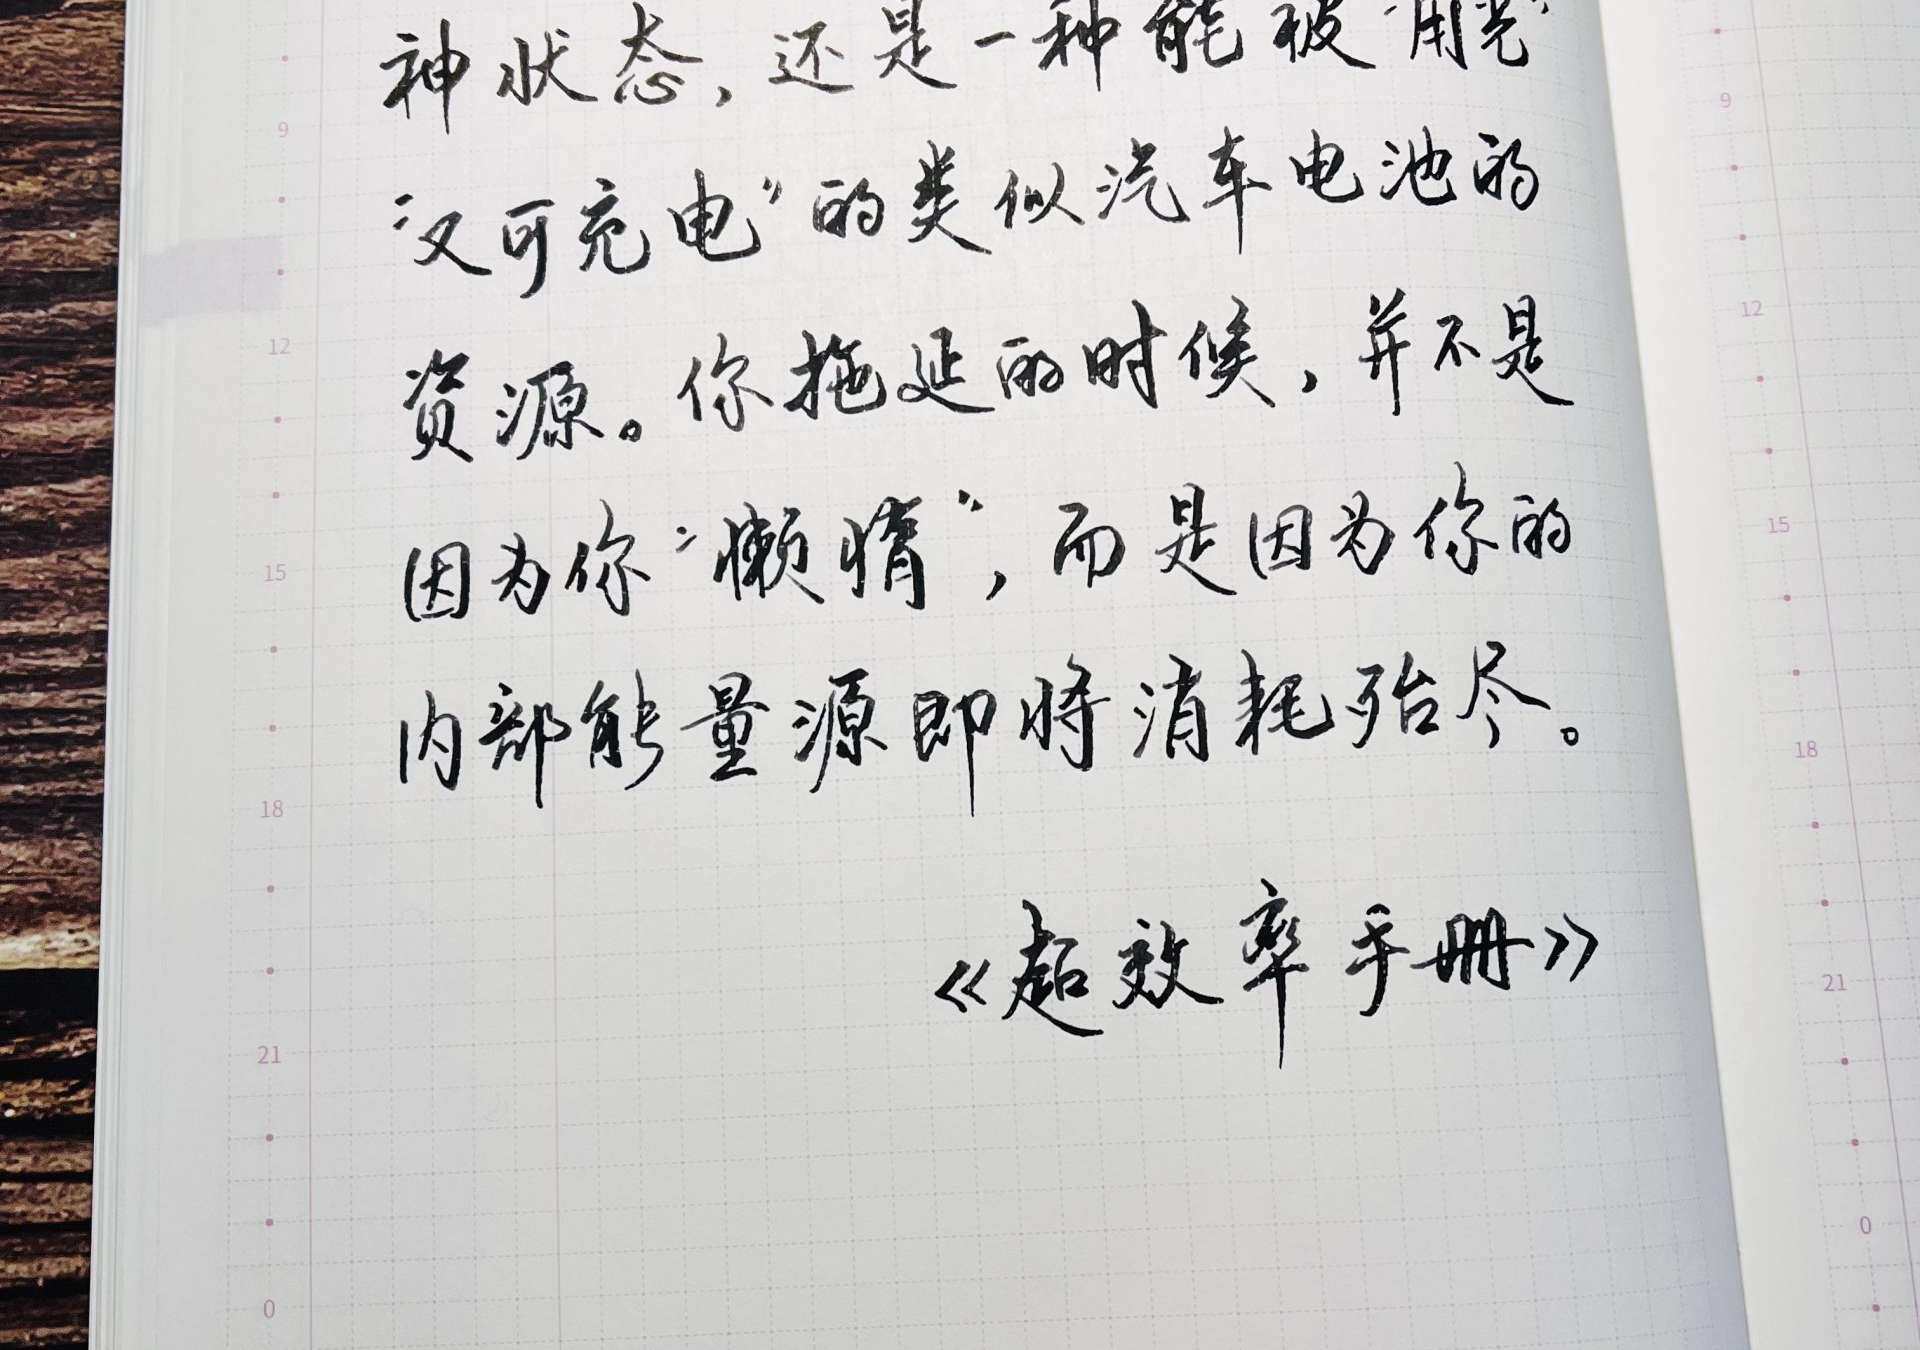 神状态，还是一种能被“用光”
“又可充电”的类似汽车电池的
资源。你拖延的时候，并不是
因为你“懒惰”，而是因为你的
内部能量源即将消耗殆尽。
《超效率手册》
9
12
15
18
21
0
9
12
15
18
21
0